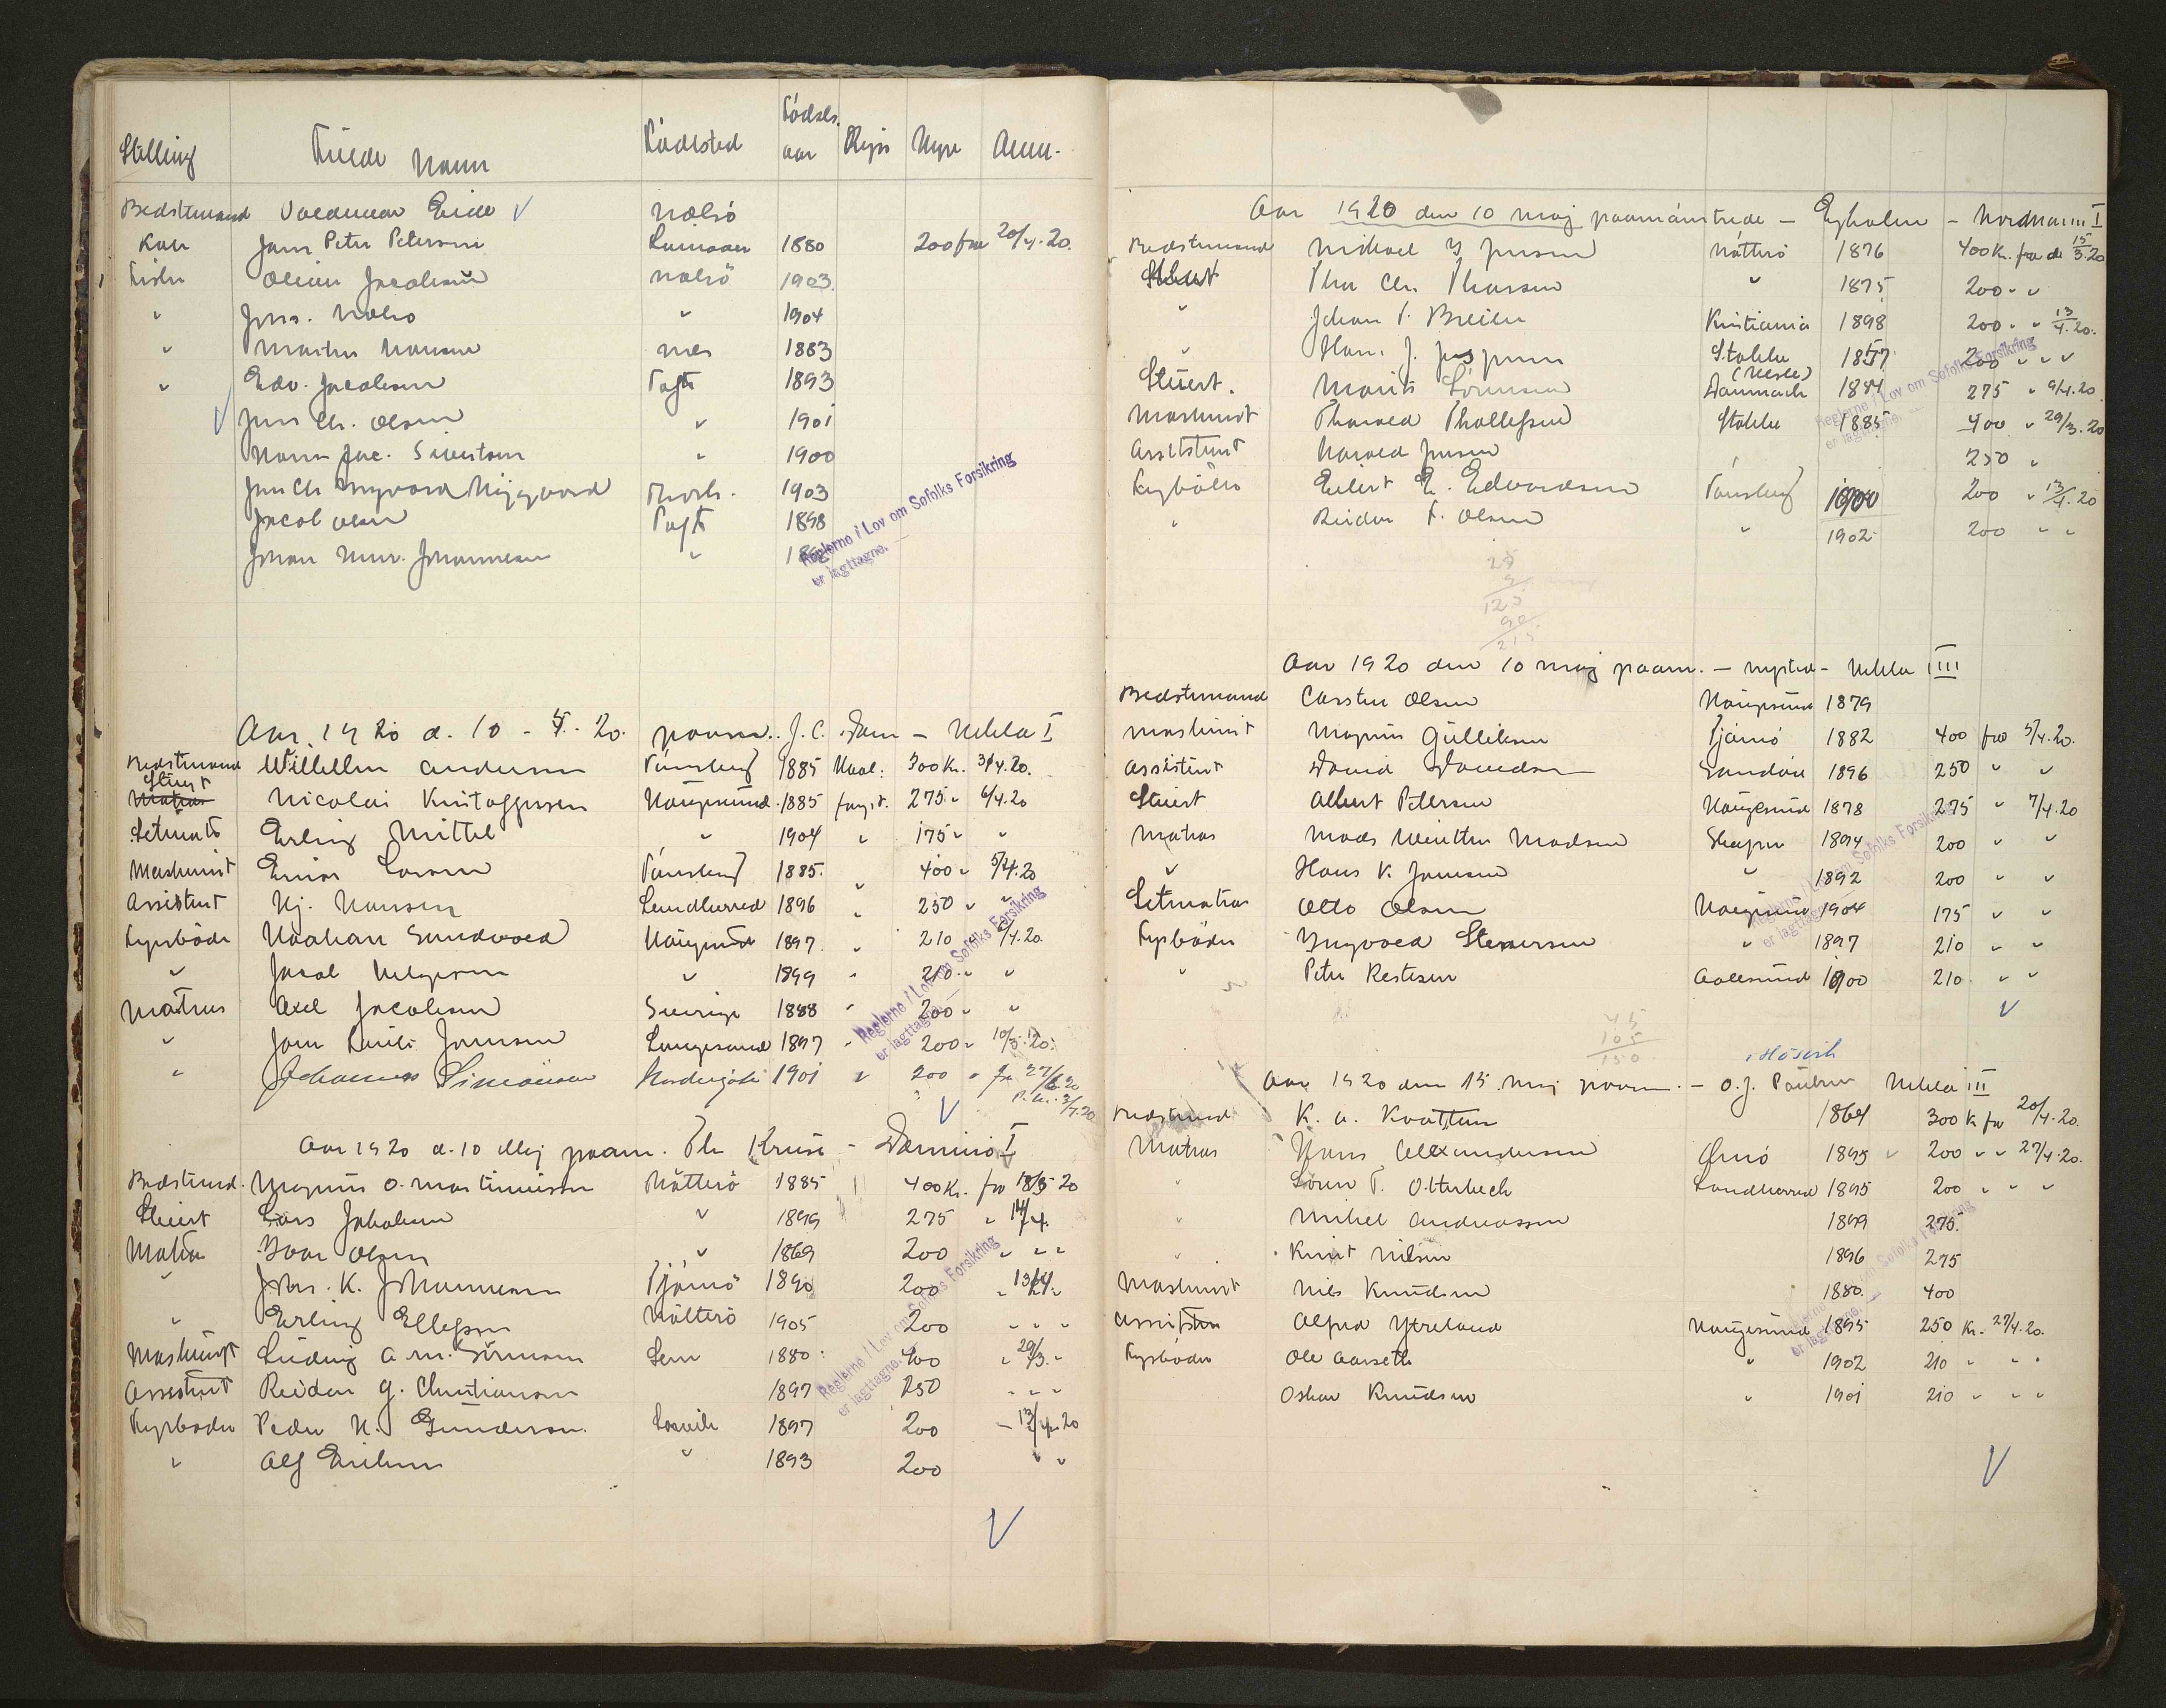 Stilling Fulde Navn Födested Födsels aar Rejse Hyre Anm.
Bedstemand Valdemar Eide Nolsö
Kok Jens Peter Petersen 1880 200 fra 20/4.20.
Fisker Jacobsen Nolsö 1903
" Jens. Nolsö " 1904
" Martin Hansen Nes 1883
" Edv. Jacobsen Toft 1893
Jens Chr. Olsen " 1901
Hans Jac. Sivertsen " 1900
Jens Chr. Thorsh. 1903
Jacob Olsen Toft 1898
Johan Johannesen "
Reglerne i Lov om Søfolks Forsikring
er iagttagne.
Aar 1920 d. 10 - 5. 20. paam. J. C. Dam - Hekla I
Bedstemand Willellm Andersen Tönsberg 1885 Hval: 300 Kr. 3/4.20.
Stuert Nicolai Kristoffersen Haugesund 1885 fangst. 275 " 6/4.20
Letmats Erling Mittel " 1904 " 175 " "
Maskinist Einar Larsen Tönsberg 1885. " 400 " 5/4.20
Assistent Hj. Hansen Sandherred 1896 " 250 " "
Fyrböder Haakan Sundvord Haugesund 1897 " 210 " /4.20
" Jacob Helgesen " 1899 " 210 " "
Matros Axel Jacobsen Sverige 1888 " 200 " "
" Jens Emil Jensen Langesund 1897 " 200 " 10/5.20.
" Johannes Simonsen Nordregöte 1901 " 200 " fra 27/6 20
Reglerne i Lov om Søfolks Forsikring
er iagttagne.
Aar 1920 d. 10 Maj paam. Kruse - Damino I
Bedstemd. Magnus O. Martinusen Nötterö 1885 400 Kr. fra 18/3 20
Stuert Lars Jakobsen " 1899 275 " 14/4.
Matros Ivar Olsen " 1869 200 " " "
" Johs. K. Johannesen Tjömö 1890 200 " 13/4. "
" Erling Ellefsen Nötterö 1905 200 " " "
Maskinist Ludvig A. M. Sörensen Sem 1880 400 " 29/3. "
Assistent Reidar G. Christiansen 1897 250 " " "
Fyrböder Peder N. Gundersen Larvik 1897 200 - 13/4.20
" Alf Eriksen " 1893 200 " "
Reglerne i Lov om Søfolks Forsikring
er iagttagne.
Aar 1920 den 10 Maj paamönstrede - Eyholm - Nordhavn I
Bedstemand Mikael Y Jensen Nötterö 1876 400 Kr. fra d. 15/3.20
Chr. Thorsen " 1875 200 " "
" Johan F. Kristiania 1898 200 " " 13/4.20.
" Hans J. Jespersen Stokke 1857 200 " " "
Stuert. Marits Sörensen Danmark 1884 275 " 9/4.20
Maskinist Thorvald Thollefsen Stokke 1885 400 " 29/3.20
Assistent Harald Jensen 250 "
Fyrböder Eilert E. Edvardsen Tönsberg 1900 200 " 13/4.20
" Reidar F. Olsen " 1902 200 " "
Reglerne i Lov om Søfolks Forsikring
er iagttagne.
25
125
90
215
Aar 1920 den 10 Maj paam. - Nysted - Hekla IIII
Bedstemand Carsten Olsen Haugesund 1879
Maskinist Magnus Gulliksen Tjömö 1882 400 fra 5/4.20.
Assistent David Davidsen Sandöen 1896 250 " "
Stuert Albert Petersen Haugesund 1878 275 " 7/4.20
Matros Mads Winther Madsen Skapen 1894 200 " "
" Hans K. Joensen " 1892 200 " "
Letmatros Otto Olsen Haugesund 1904 175 " "
Fyrböder Yngvold Stenersen " 1897 210 " "
" Peter Restesen Aalesund 1900 210. " "
Reglerne i Lov om Søfolks Forsikring
er iagttagne.
45
105
150
i Hösvik
Aar 1920 den 15 Maj paam. - O. J. Poulsen Hekla III
Bedstemd. K. A. Kvattum 1864 300 K fra 20/4.20.
Matros Hans Alexandersen Ornö 1895 " 200 " " 27/4.20.
" Sören T. Otterbech Sandherred 1895 200 " " "
" Mikel Andreassen 1899 275.
" Knut Nilsen 1896 275
Maskinist Nils Knudsen 1880. 400
Assistent Alfred Ytreland Haugesund 1895 250 Kr. 27/4.20.
Fyrböder Ole Aarseth " 1902 210 " " "
Oskar Knudsen " 1901 210 " " "
Reglerne i Lov om Søfolks Forsikring
er iagttagne.